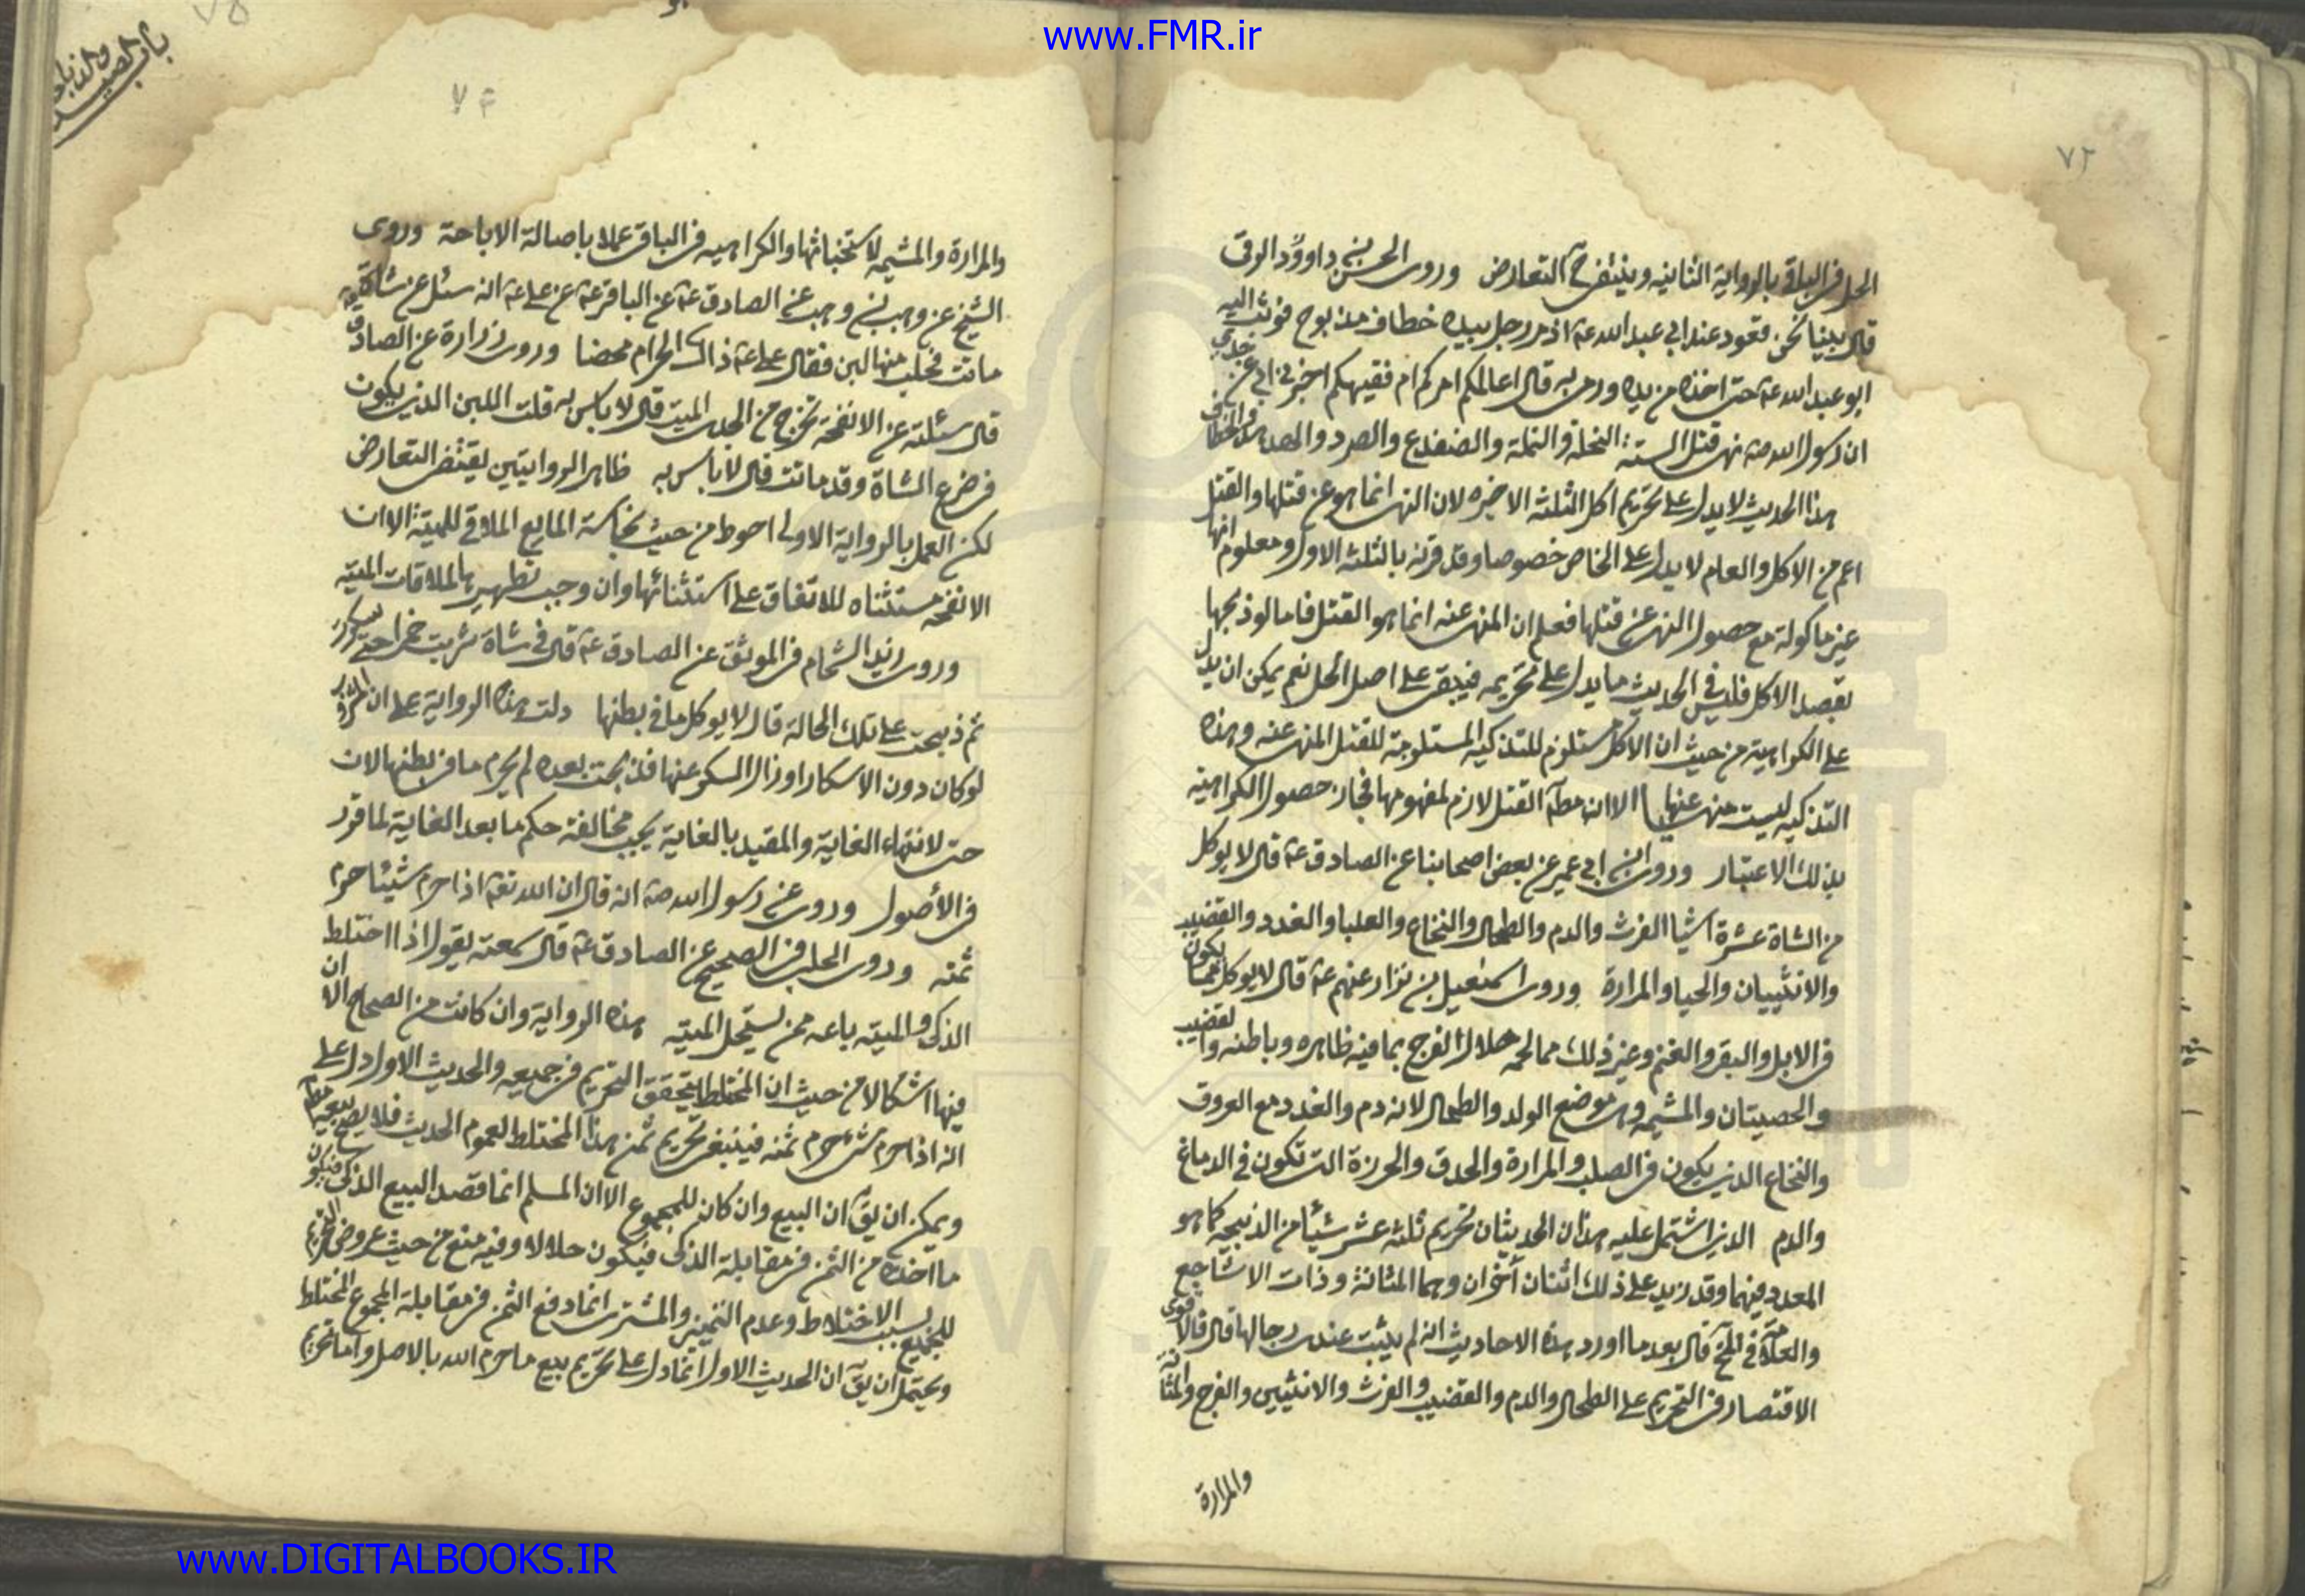 www.FMR.ir
٧٢
الحل فى الباقى بالرواية الثانيه وينتفى ح التعارض وروى الحسن بن داوود الرقى
قال بينا نحن قعود عند ابى عبد الله عه اذ مر رجل بيده خطاف مذبوح فوثب اليه
ابو عبد الله عه حتى اخذه من يده ودمى به قال اعالمكم امركم ام فقيهكم اخبرنى ابى عن جدى
ان رسول الله صه نهى قتل الستة النحلة والنملة والضفدع والصرد والهدهد والخطاف
هذا الحديث لا يدل على تحريم اكل الثلثه الاخيره لان النهى انما هو عن قتلها والقتل
اعم من الاكل والعام لا يدل على الخاص خصوصا وقد قرنه بالثلثه الاول ومعلوم انها
غير ماكولة مع حصول النهى عن قتلها فعلم ان المنهى عنه انما هو القتل فاما لو ذبحها
بقصد الاكل فليس فى الحديث ما يدل على تحريمه فيبقى على اصل الحل نعم يمكن ان يدل
على الكراهية من حيث ان الاكل مستلزم للتذكيه المستلزمة للقتل المنهى عنه وهذه
التذكيه ليست منهى عنها الا ان القتل لازم لمفهومها فجاز حصول الكراهيه
بذلك الاعتبار وروى ابن ابى عمير عن بعض اصحابنا عن الصادق عه قال لا يوكل
من الشاة عشرة اشيا الفرث والدم والطحال والنخاع والعلبا والغدد والقضيب
والانثييان والحيا والمرارة وروى اسمعيل بن مرار عنهم عه قال لا يوكل مما يكون
فى الابل والبقر والغنم وغير ذلك مما لحمه حلال الفرج بما فيه ظاهره وباطنه والقضيب
والخصيتان والمشيمه وهى موضع الولد والطحال لانه دم والغدد مع العروق
والنخاع الذى يكون فى الصلب والمرارة والحدق والخرزة التى تكون فى الدماغ
والدم الذى اشتمل عليه هذان الحديثان تحريم ثلثه عشر شيئا من الذبيحه كما هو
المعدد فيهما وقد زيد على ذلك اثنان أخران وهما المثانة وذات الاشاجع
والعلامة فى قال بعد ما اورد هذه الاحاديث انه لم يثبت عندى رجالها قال فالاقوى
الاقتصار فى التحريم على الطحال والدم والقضيب والفرث والانثيين والفرج والمثانة
والمرارة
٧٥
باب الصيد والذبايح
٧٤
والمرارة والمشيمه لاستخباثها والكراهيه فى الباقى عملا باصالة الاباحة وروى
الشيخ عن وهب بن وهب عن الصادق عه عن الباقر عه عن على عه انه سئل عن شاة
ماتت فحلب منها لبن فقال على عه ذاك الحرام محضا وروى زرارة عن الصادق
قال سئلته عن الانفحة تخرج من الجدى الميت قال لا باس به قلت اللبن الذى يكون
فى ضرع الشاة وقد ماتت قال لا باس به ظاهر الروايتين يقتضى التعارض
لكن العمل بالرواية الاولى احوط من حيث نجاسة المايع الملاقى للميتة الا ان
الانفحه مستثناه للاتفاق على استثنائها وان وجب تطهيرها لملاقات الميته
وروى زيد الشحام فى الموثق عن الصادق عه قال فى شاة شربت خمرا حتى سكرت
ثم ذبحت على تلك الحالة قال لا يوكل ما فى بطنها دلت هذه الرواية على ان
لو كان دون الاسكار او زال السكر عنها فذبحت بعده لم يحرم ما فى بطنها لان
حتى لانتهاء الغاية والمقيد بالغاية يجب مخالفة حكم ما بعد الغاية لما قرر
فى الأصول وروى عن رسول الله صه انه قال ان الله تعه اذا حرم شيئا حرم
ثمنه وروى الحلبى فى الصحيح عن الصادق عه قال سمعته يقول اذا اختلط
الذكى والميته باعه ممن يستحل الميته هذه الرواية وان كانت من الصحاح الا ان
فيها اشكالا من حيث ان المختلط يتحقق التحريم فى جميعه والحديث الاول دل على
انه اذا حرم شئ حرم ثمنه فينبغى تحريم ثمن هذا المختلط لعموم الحديث فلا يصح بيعه
ويمكن ان يق ان البيع وان كان للمجموع الا ان المسلم انما قصد البيع الذكى فيكون
ما اخذه من الثمن فى مقابلة الذكى فيكون حلالا له وفيه منع من حيث عروض التحريم
للجميع بسبب الاختلاط وعدم التمييز والمشترى انما دفع الثمن فى مقابلة المجموع المختلط
ويحتمل ان يق ان الحديث الاول انما دل على تحريم بيع ما حرم الله بالاصل واما تحريم
www.DIGITALBOOKS.IR